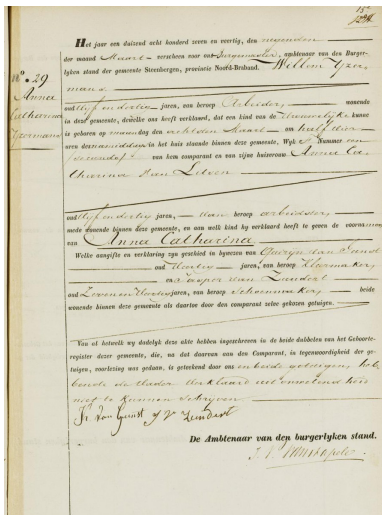 15
No. 29
Anna
Catharina
Yzermans
Het jaar een duizend acht honderd zeven en veertig, den negenden
der maand Maart verscheen voor ons Burgemeester, ambtenaar van den Burger-
lyken stand der gemeente Steenbergen, provincie Noord-Braband. Willem Yzer
mans
oud vyf en dertig jaren, van beroep Arbeider, wonende
in deze gemeente, dewelke ons heeft verklaard, dat een kind van de vrouwelyke kunne
is geboren op maandag den achtsten Maart om half drie
uren des namiddags in het huis staande binnen deze gemeente, Wyk Nummer een
van hem comparant en van zijne huisvrouw Anna Ca-
tharina Van Loven
oud vyf en dertig jaren, van beroep arbeidster,
mede wonende binnen deze gemeente, en aan welk kind hy verklaard heeft te geven de voornamen
van Anna Catharina
Welke aangifte en verklaring zyn geschied in bywezen van Quiryn van Gunst
oud Veertig jaren, van beroep Kleermaker,
en Jaspar van Zundert
oud Zeven en Veertig jaren, van beroep Schoenmaker, beide
wonende binnen deze gemeente als daartoe door den comparant zelve gekozen getuigen.
Van al hetwelk wy dadelyk deze akte hebben ingeschreven in de beide dubbelen van het Geboorte-
register dezer gemeente, die, na dat daarvan aan den Comparant, in tegenwoordigheid der ge-
tuigen, voorlezing was gedaan, is geteekend door ons en beide getuigen, heb
bende de Vader verklaard uit onwetendheid
niet te kunnen schryven
van Gunst J V Zundert
De Ambtenaar van den burgerlyken stand.